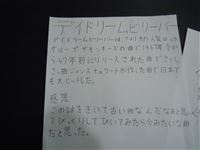 デイドリームビリーバー
デイドリームビリーバーはアメリカの人気ロック
グループ ザモンキーズの曲で1967年 今から
47年前にリリースされた曲でさくし
さ曲ジョンスチュワートが作った曲で日本でも
大ヒットした。
感想
この話をきいて古い曲なんだなあと思っ
てびっくりしてひいてみたら今みたいな曲
だと思った。